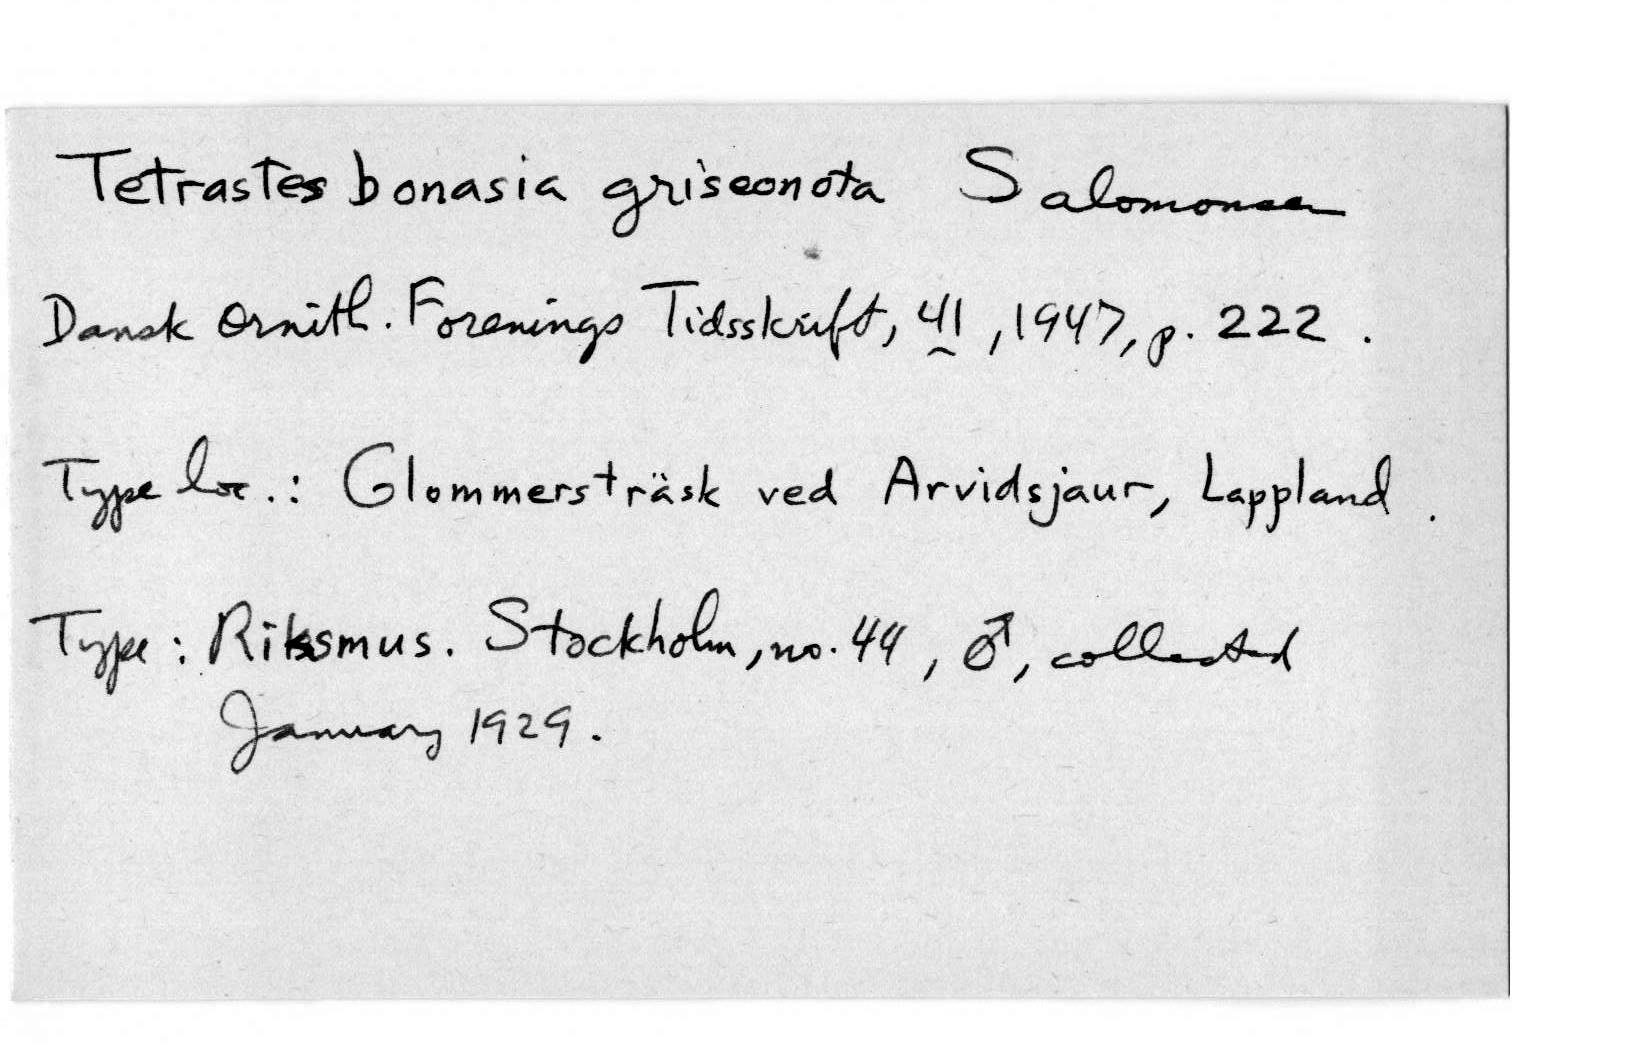 Tetrastes bonasia griseonota Salomonsen
Dansk Ornith. Forenings Tidsskrift, 41, 1947, p. 222.
Type loc.: Glommersträsk ved Arvidsjaur, Lappland.
Type: Riksmus. Stockholm, no. 44, ♂, collected
January 1929.